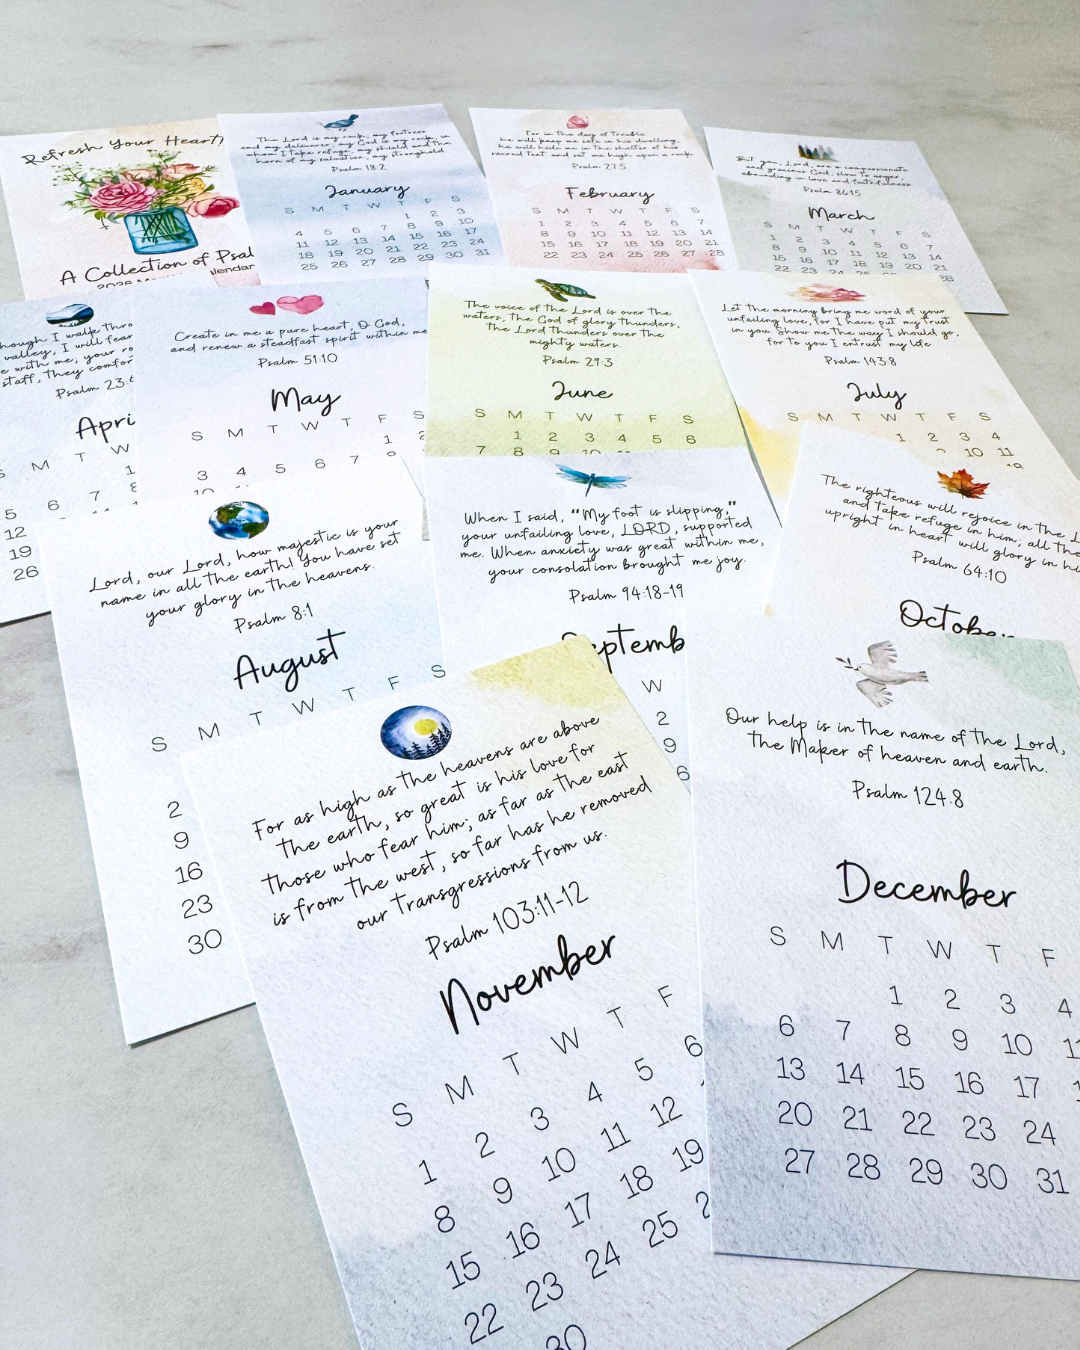 Refresh Your Heart
A Collection of Psal
2026
lendar
The Lord is my rock, my fortress
and my deliverer; my God is my rock, in
whom I take refuge, my shield and the
horn of my salvation, my stronghold.
Psalm 18:2
January
S M T W T F S
1 2 3
4 5 6 7 8 9 10
11 12 13 14 15 16 17
18 19 20 21 22 23 24
25 26 27 28 29 30 31
For in the day of trouble
he will keep me safe in his dwelling;
he will hide me in the shelter of his
sacred tent and set me high upon a rock.
Psalm 27:5
February
S M T W T F S
1 2 3 4 5 6 7
8 9 10 11 12 13 14
15 16 17 18 19 20 21
22 23 24 25 26 27 28
But you, Lord, are a compassionate
and gracious God, slow to anger,
abounding in love and faithfulness.
Psalm 86:15
March
S M T W T F S
1 2 3 4 5 6 7
8 9 10 11 12 13 14
15 16 17 18 19 20 21
22 23 24 25 26 27
28
hough I walk thro
valley, I will fear
e with me; your ro
staff, they comfor
Psalm 23:4
Apri
S M T W
1
5 6 7 8
12
19
26
Create in me a pure heart, O God,
and renew a steadfast spirit within me.
Psalm 51:10
May
S M T W T F S
1 2
3 4 5 6 7 8 9
10 11
The voice of the Lord is over the
waters; the God of glory thunders,
the Lord thunders over the
mighty waters.
Psalm 29:3
June
S M T W T F S
1 2 3 4 5 6
7 8 9 10 11
Let the morning bring me word of your
unfailing love, for I have put my trust
in you. Show me the way I should go,
for to you I entrust my life.
Psalm 143:8
July
S M T W T F S
1 2 3 4
10 11
18
Lord, our Lord, how majestic is your
name in all the earth! You have set
your glory in the heavens.
Psalm 8:1
August
S M T W T F S
2
9
16
23
30
When I said, "My foot is slipping,"
your unfailing love, LORD, supported
me. When anxiety was great within me,
your consolation brought me joy.
Psalm 94:18-19
Septemb
W
2
9
6
The righteous will rejoice in the L
and take refuge in him; all the
upright in heart will glory in hi
Psalm 64:10
October
For as high as the heavens are above
the earth, so great is his love for
those who fear him; as far as the east
is from the west, so far has he removed
our transgressions from us.
Psalm 103:11-12
November
S M T W T F
1 2 3 4 5 6
8 9 10 11 12
15 16 17 18 19
22 23 24 25 2
30
Our help is in the name of the Lord,
the Maker of heaven and earth.
Psalm 124:8
December
S M T W T F
1 2 3 4
6 7 8 9 10 11
13 14 15 16 17 1
20 21 22 23 24
27 28 29 30 31